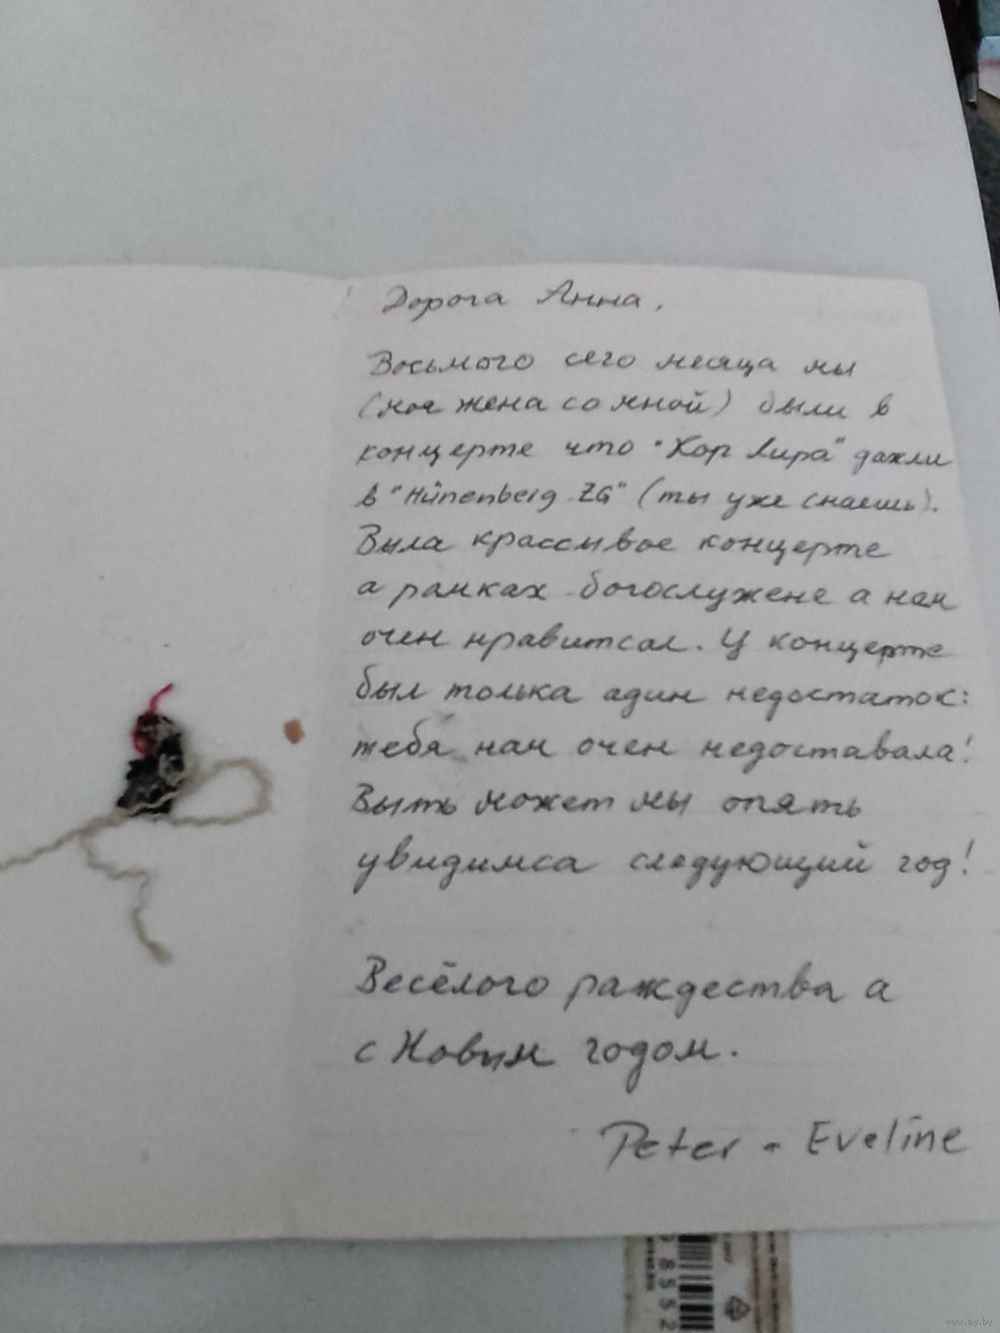 Дорога Анна,
Восьмого сего месяца мы
(моя жена со мной) были в
концерте что "Хор Лира" дахли
в "Hünenberg ZG" (ты уже снаешь).
Была крассывое концерте
а рамках богослужене а нам
очен нравитсал. У концерте
был толька адин недостаток:
тебя нам очен недоставала!
Быть может мы опять
увидимса следующий год!
Весёлого раждества а
с Новым годом.
Peter - Eveline
8552
www.ay.by